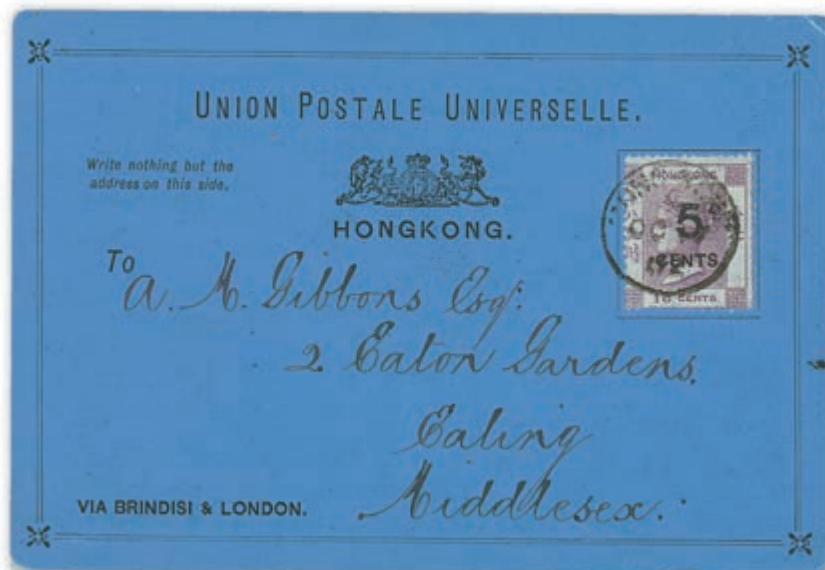 UNION POSTALE UNIVERSELLE.
Write nothing but the
address on this side.
HONGKONG.
HONG KONG
5
CENTS
18 CENTS
OC
To
A. M. Gibbons Esqr.
2 Eaton Gardens.
Ealing
Middlesex.
VIA BRINDISI & LONDON.